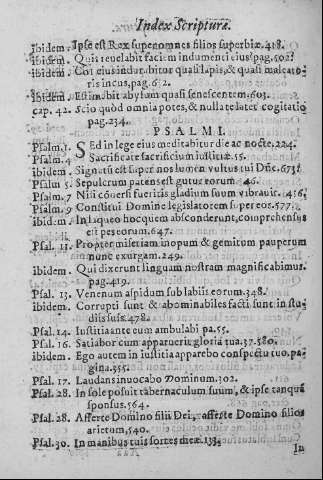 Index Scripturæ.
ibidem. Ipse est Rex super omnes filios superbiæ. 418.
ibidem. Quis reuelabit faciem indumenti eius? pag. 502.
ibidem. Cor eius indurabitur quasi lapis, & quasi maleato-
ris incus, pag. 612.
ibidem. Estimabit abyssum quasi senescentem. 603.
cap. 42. Scio quòd omnia potes, & nulla te latet cogitatio
pag. 234.
PSALMI.
Psalm. 1. Sed in lege eius meditabitur die ac nocte. 224.
Psalm. 4 Sacrificate sacrificium iustitiæ. 55.
ibidem. Signatũ est super nos lumen vultus tui Dñe. 673.
Psalm 5. Sepulcrum patens est gutur eorum. 46.
Psalm. 7 Nisi cõuersi fueritis gladium suum vibrauit. 416.
Psalm. 9 Constitui Domine legislatorem super eos. 577.
ibidem. In laqueo hoc quem absconderunt, comprehensus
est pes eorum. 647.
Psal. 11. Propter miseriam inopum & gemitum pauperum
nunc exurgam. 249.
ibidem. Qui dixerunt linguam nostram magnificabimus.
pag. 419.
Psal. 13. Venenum aspidum sub labiis eorum. 348.
ibidem. Corrupti sunt & abominabiles facti sunt in stu-
diis suis. 478.
Psal. 14. Iustitia ante eum ambulabi pa. 55.
Psal. 16. Satiabor cum apparuerit gloria tua. 37. 580.
ibidem. Ego autem in iustitia apparebo conspectu tuo. pa-
gina. 555.
Psal. 17. Laudans inuocabo Dominum. 302.
Psal. 28. In sole posuit tabernaculum suum, & ipse tanquã
sponsus. 564.
Psal. 28. Afferte Domino filii Dei, afferte Domino filios
arietum, 540.
Psal. 30. In manibus tuis sortes meæ. 133.
In